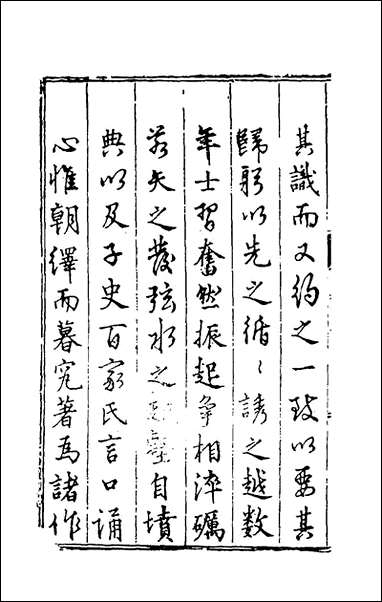 其識而又約之一致以要其
歸躬以先之循〻誘之越數
年士習奮然振起爭相淬礪
若矢之發弦水之壑自墳
典以及子史百家氏言口誦
心惟朝繹而暮究著爲諸作